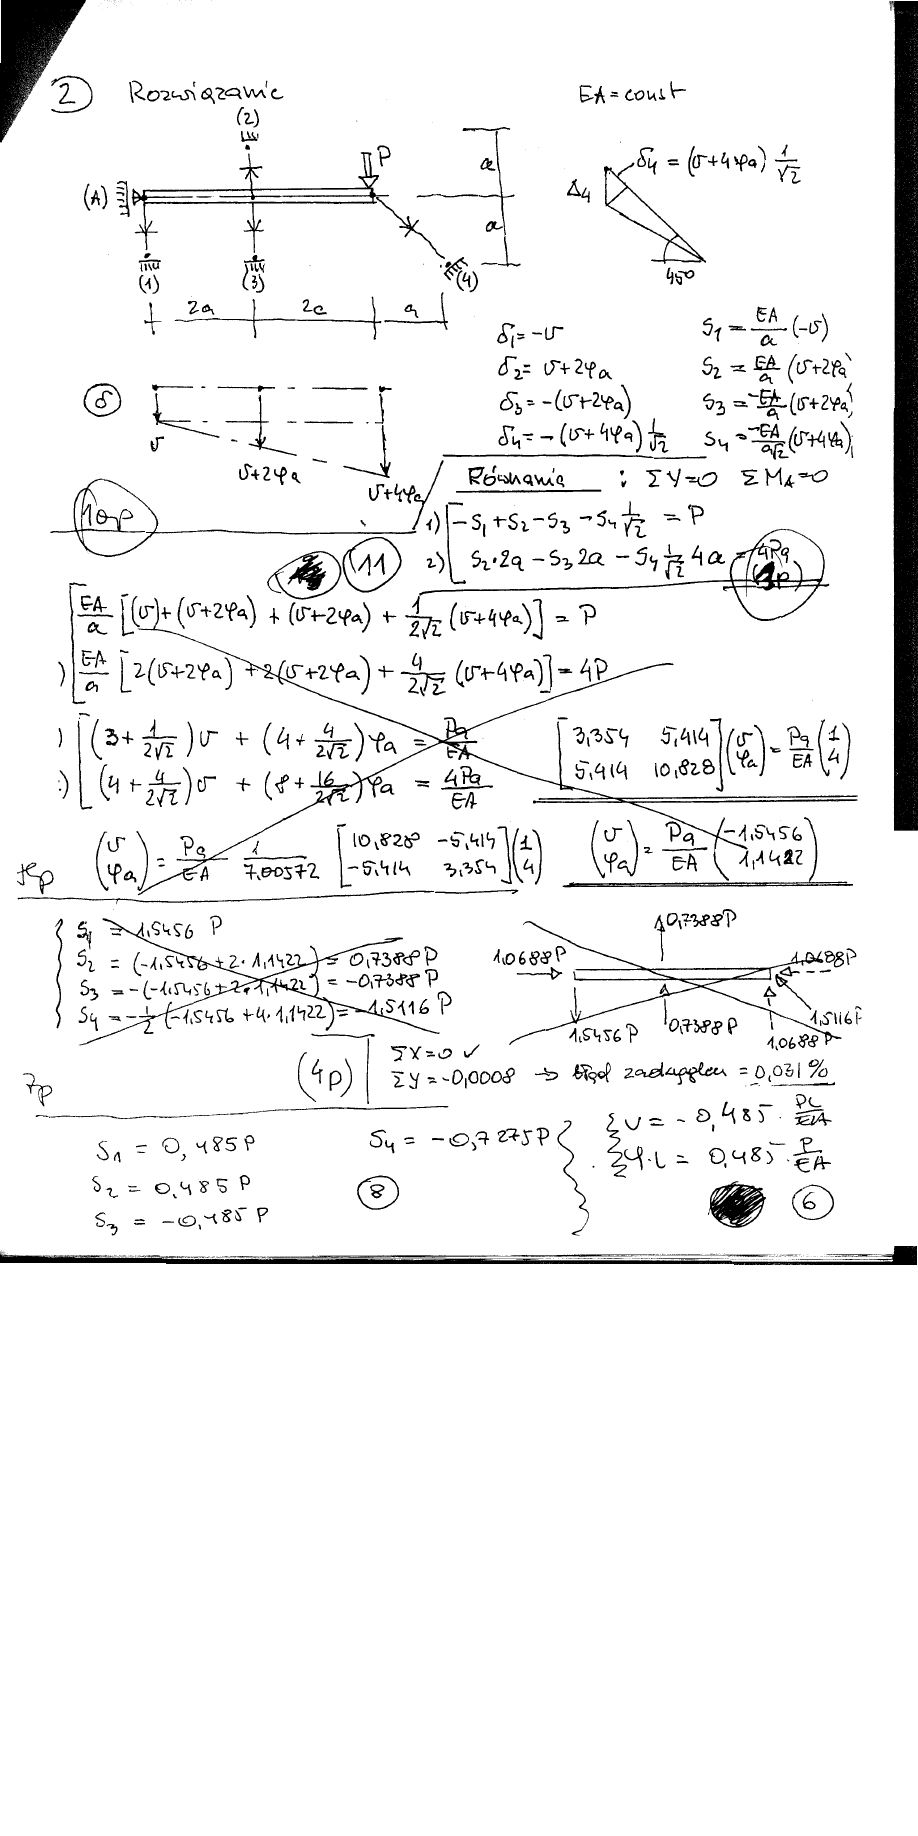 2 Rozwiązanie EA = const
(2)
P
(A)
a
a
(1) (3) (4)
2a 2a a
Δ4 δ4 = (υ+4φa) 1/√2
45°
δ1 = -υ S1 = EA/a (-υ)
δ2 = υ+2φa S2 = EA/a (υ+2φa)
δ3 = -(υ+2φa) S3 = -EA/a (υ+2φa)
δ4 = -(υ+4φa) 1/√2 S4 = -EA/a√2 (υ+4φa)
δ
υ υ+2φa υ+4φa
10p
Równania : ΣY=0 ΣMA=0
1) -S1+S2-S3-S4 1/√2 = P
2) S2·2a - S3 2a - S4 1/√2 4a = 4Pa
11
EA/a [(υ)+(υ+2φa)+(υ+2φa)+ 1/2√2 (υ+4φa)] = P
) EA/a [2(υ+2φa)+2(υ+2φa)+ 4/2√2 (υ+4φa)] = 4P
) (3+ 1/2√2)υ + (4+ 4/2√2)φa = Pa/EA
:) (4+ 4/2√2)υ + (8+ 16/2√2)φa = 4Pa/EA
[3,354 5,414
5,414 10,828] (υ φa) = Pa/EA (1 4)
(υ φa) = Pa/EA 1/7,00572 [10,828 -5,414
-5,414 3,354] (1 4)
(υ φa) = Pa/EA (-1,5456
1,1422)
S1 = 1,5456 P
S2 = (-1,5456+2·1,1422) = 0,7388P
S3 = -(-1,5456+2·1,1422) = -0,7388P
S4 = -1/2 (-1,5456+4·1,1422) = -1,5116 P
0,7388P
1,0688P 1,0688P
1,5456P 0,7388P 1,5116P
1,0688P
7p
(4p) ΣX=0 ✓
ΣY=-0,0008 → błąd = 0,031%
S1 = 0,485P S4 = -0,7275P υ = -0,485 · PL/EA
S2 = 0,485P φ·L = 0,485 · P/EA
S3 = -0,485P
8 6